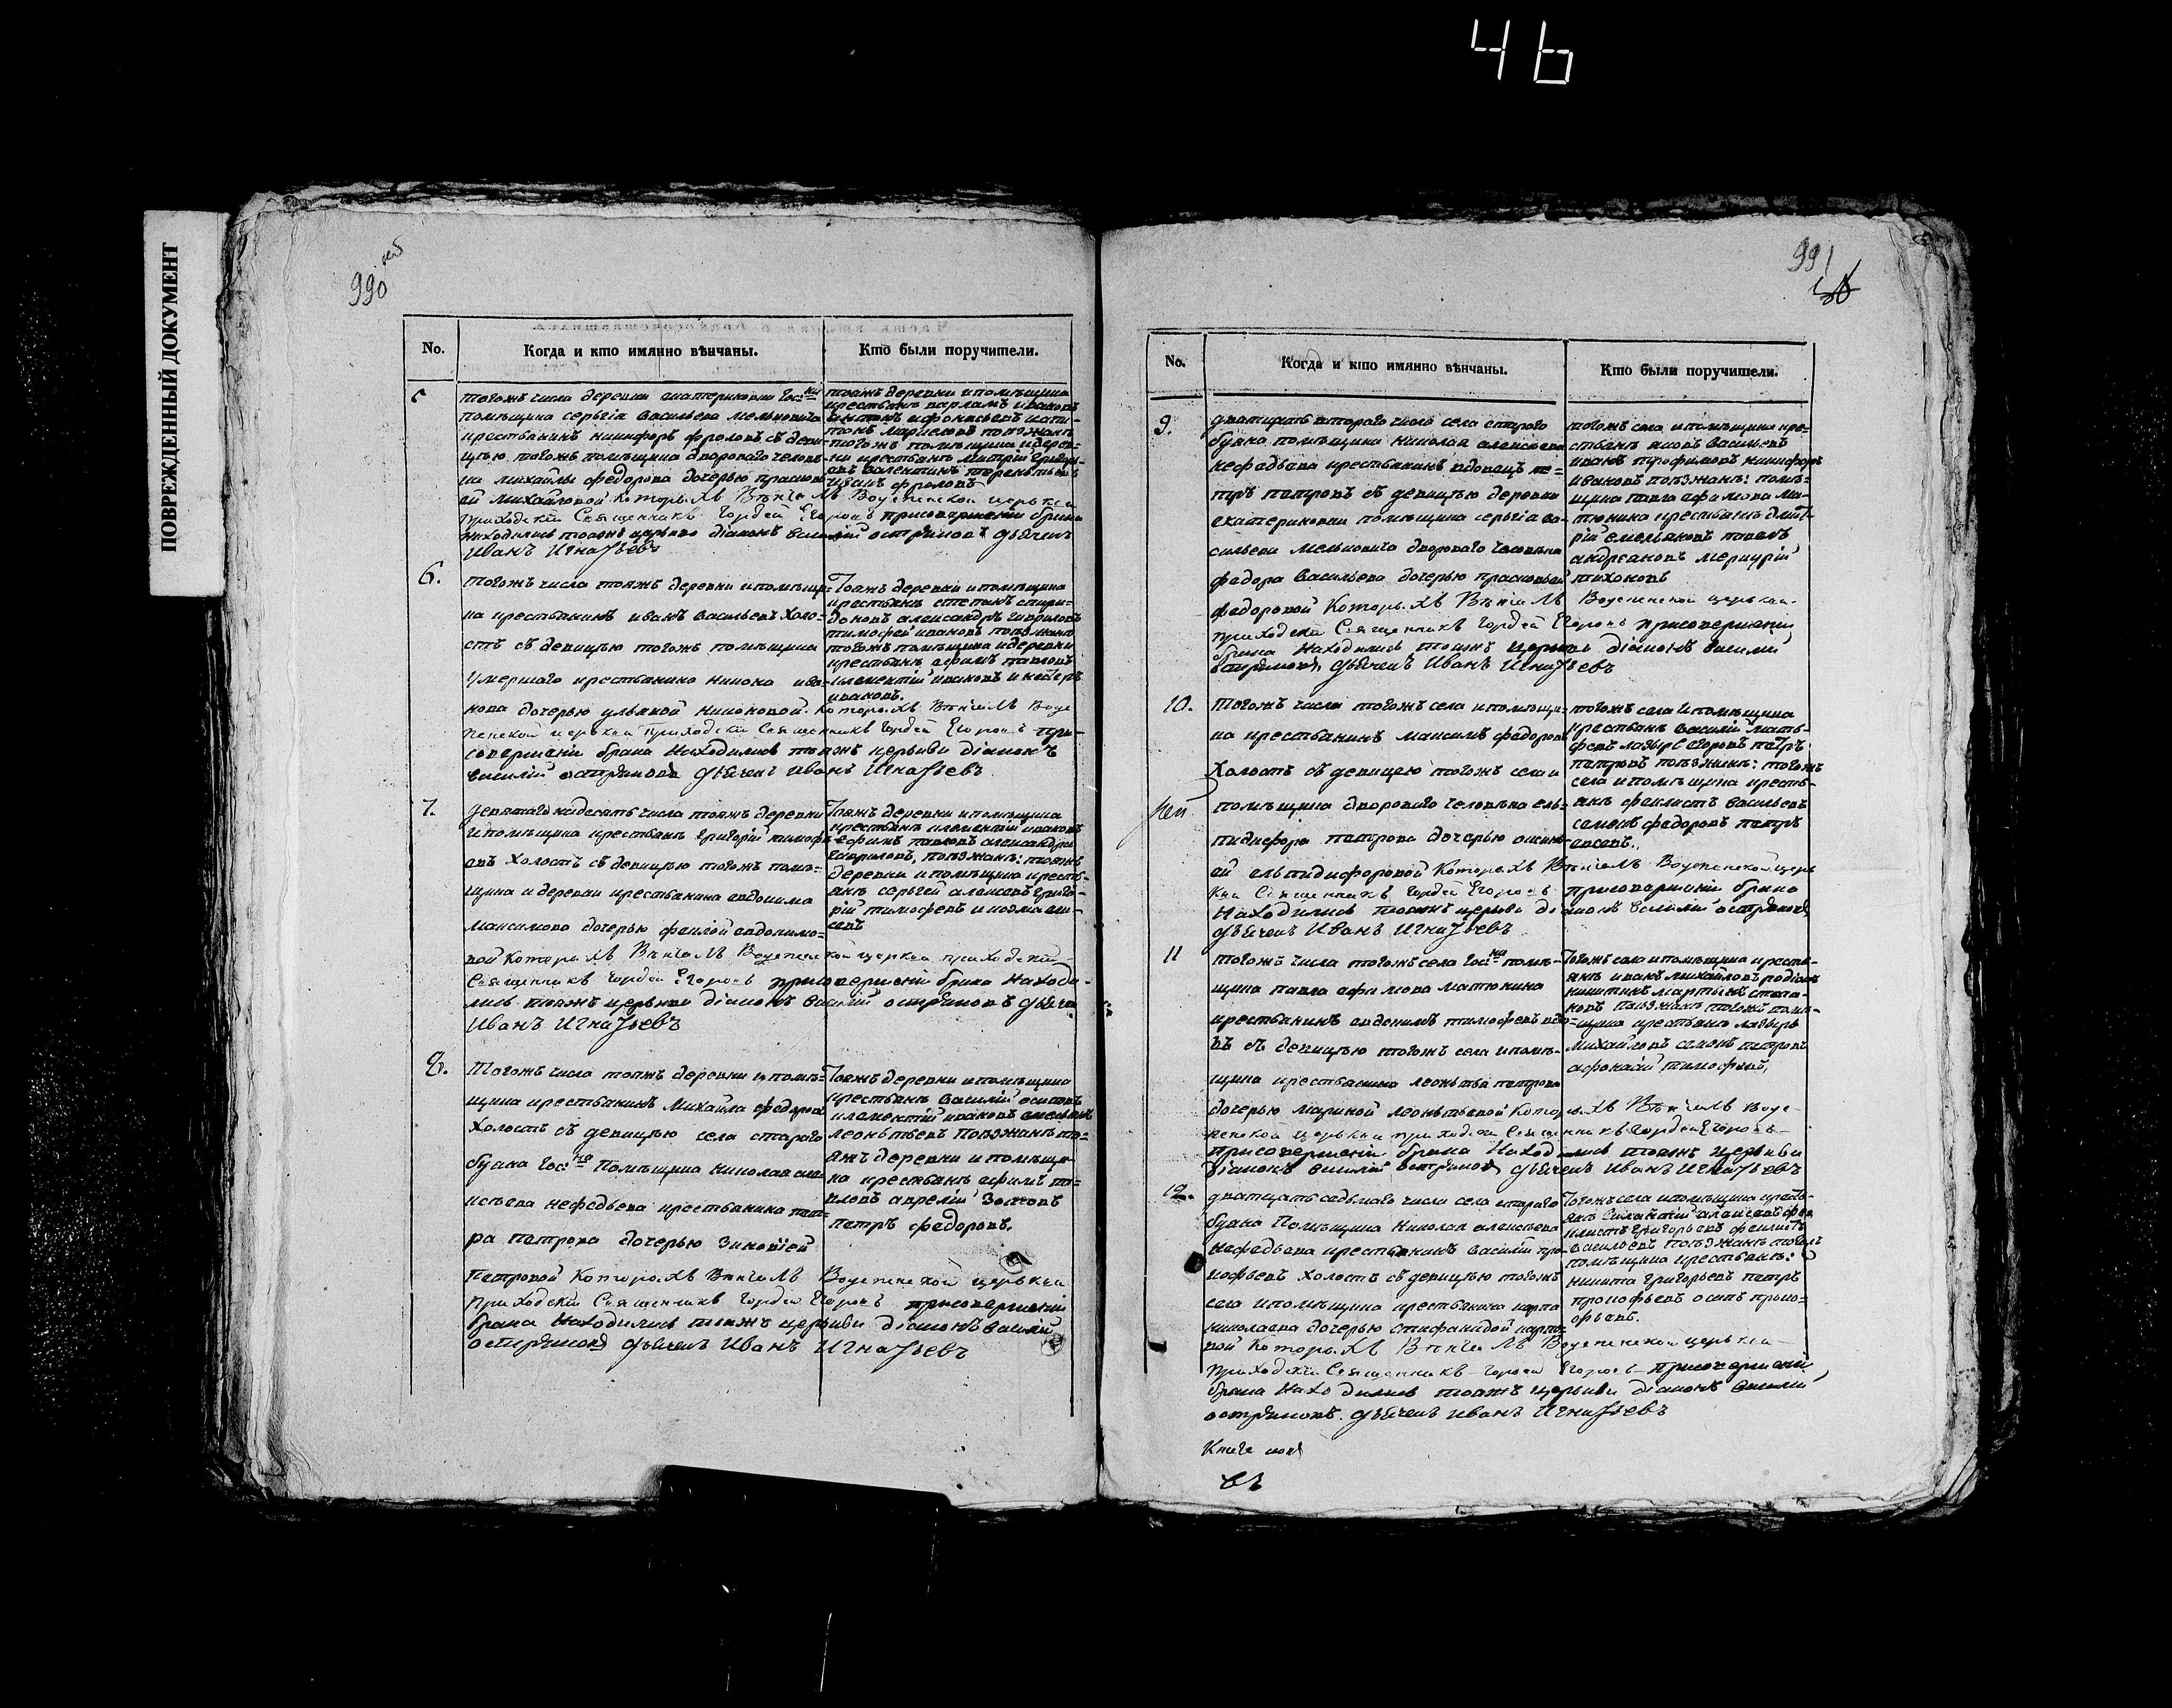 46
ПОВРЕЖДЕННЫЙ ДОКУМЕНТ
990
No.
Когда и кто имянно вѣнчаны.
Кто были поручители.
5
тогожъ числа деревни екатериновки Гос:на
помѣщика сергѣя васильева мельковича
крестьянинъ никифоръ фроловъ съ деви-
цѣю тогожъ помѣщика двороваго человѣ-
ка михайлы федорова дочерью прасковь-
ей михайловой которыхъ Вѣнчалъ Воденской церькви
приходской Священникъ Гордей Егоровъ присовершенiи брака
находились тояжъ церькви дiаконъ василiй остряковъ дьячекъ
Иванъ Игнатьевъ
тояжъ деревни и помѣщика
крестьянъ варламъ ивановъ
поѣзжанъ
тогожъ помѣщика и дерев-
ни крестьянъ митрiй григорь-
евъ валентинъ терентьевъ
фроловъ
6.
тогожъ числа тояжъ деревни и помѣщи-
ка крестьянинъ иванъ васильевъ холо-
стъ съ девицѣю тогожъ помѣщика
умершаго крестьянина никона ива-
нова дочерью ульяной никоновой. которыхъ Вѣнчалъ Воде
ненской церькви приходской Священникъ Гордей Егоровъ при-
совершенiи брака находились тояжъ церькви дiаконъ
василiй остряковъ дьячекъ Иванъ Игнатьевъ
Тояжъ деревни и помѣщика
крестьянъ степанъ спири-
доновъ александръ гавриловъ
тимофей ивановъ поѣзжанъ
тогожъ помѣщика и деревни
крестьянъ ефимъ павловъ
клементiй ивановъ
ивановъ.
7.
девятаго надесять числа тояжъ деревни
и помѣщика крестьянъ григорiй тимофе-
евъ холостъ съ девицѣю тогожъ помѣ-
щика и деревни крестьянина евдокима
максимова дочерью феклой евдокимо-
вой которыхъ Вѣнчалъ Воденской церькви приходской
Священникъ Гордей Егоровъ присовершенiи брака находи-
лись тояжъ церькви дiаконъ василiй остряковъ дьячекъ
Иванъ Игнатьевъ
Тояжъ деревни и помѣщика
крестьянъ клементiй ивановъ
ефимъ павловъ александръ
гавриловъ, поѣзжанъ: тояжъ
деревни и помѣщика кресть-
янъ сергѣй алексѣевъ григо-
рiй тимофеевъ и козма ели-
сеевъ
8.
Тогожъ числа тояжъ деревни и помѣ-
щика крестьянинъ михайла федоровъ
холостъ съ девицѣю села стараго
буяна Гос:на Помѣщика Николая але-
ксѣева нефедьева крестьянина пет-
ра петрова дочерью зиновiей
Петровой которыхъ Вѣнчалъ Воденской церькви
приходской Священникъ Гордей Егоровъ присовершенiи
брака находились тояжъ церькви дiаконъ василiй
остряковъ дьячекъ Иванъ Игнатьевъ
Тояжъ деревни и помѣщика
крестьянъ василiй осиповъ
клементiй ивановъ емельянъ
леонтьевъ Поѣзжанъ то-
яжъ деревни и помѣщи-
ка крестьянъ ефимъ па-
вловъ аврелiй зотовъ
петръ федоровъ.
991
No.
Когда и кто имянно вѣнчаны.
Кто были поручители.
9.
дватцать втораго числа села стараго
буяна помѣщика николая алексѣева
нефедьева крестьянинъ вдовецъ пе-
тръ петровъ съ девицѣю деревни
екатериновки помѣщика сергѣя ва-
сильева мельковича двороваго человѣка
федора васильева дочерью прасковьей
федоровой Которыхъ Вѣнчалъ Воденской церькви
приходской Священникъ Гордей Егоровъ присовершенiи
брака находились тояжъ церькви дiаконъ василiй
остряковъ, дьячекъ Иванъ Игнатьевъ
тогожъ села и помѣщика кре-
стьянъ яковъ васильевъ
иванъ трофимовъ никифоръ
ивановъ поѣзжанъ: помѣ-
щика павла ефимова ма-
тюнина крестьянъ дмит-
рiй емельяновъ павелъ
андреяновъ меркурiй
тихоновъ
10.
Тогожъ числа тогожъ села и помѣщи-
ка крестьянинъ максимъ федоровъ
холостъ съ девицею тогожъ села и
помѣщика двороваго человѣка ель-
пидифора петрова дочерью
ей ельпидифоровой Которыхъ Вѣнчалъ Воденской церь
кви Священникъ Гордей Егоровъ присовершенiи брака
находились тояжъ церькви дiаконъ василiй остряковъ
дьячекъ Иванъ Игнатьевъ
тогожъ села и помѣщика
крестьянъ василiй матвѣ-
евъ лазырь егоровъ петръ
петровъ поѣзжанъ: тогожъ
села и помѣщика кресть-
янъ феклистъ васильевъ
семенъ федоровъ петръ
11
тогожъ числа тогожъ села Гос:на помѣ-
щика павла ефимова матюнина
крестьянинъ евдокимъ тимофеевъ вдо-
въ съ девицѣю тогожъ села и помѣ-
щика крестьянина леонтья петрова
дочерью мариной леонтьевой которыхъ Вѣнчалъ Воде-
ненской церькви приходской Священникъ Гордей Егоровъ
присовершенiи брака находились тояжъ церькви
дiаконъ василiй остряковъ дьячекъ Иванъ Игнатьевъ
Тогожъ села и помѣщика кресть-
янъ иванъ михайловъ родiонъ
никитинъ мартынъ степа-
новъ поѣзжанъ тогожъ помѣ-
щика крестьянъ лазырь
михайловъ семенъ петровъ
афонасiй тимофеевъ,
12.
дватцать седьмаго числа села стараго
буяна Помѣщика Николая алексѣева
нефедьева крестьянинъ василiй про-
кофьевъ холостъ съ девицѣю тогожъ
села и помѣщика крестьянина карпа
николаева дочерью стефанидой карпо-
вой Которыхъ Вѣнчалъ Воденской церькви
приходской Священникъ Гордей Егоровъ присовершенiи
брака находились тояжъ церькви дiаконъ василiй
остряковъ. дьячекъ Иванъ Игнатьевъ
Тогожъ села и помѣщика кресть-
янъ алексѣевъ фек
листъ григорьевъ феклистъ
васильевъ поѣзжанъ тогожъ
помѣщика крестьянъ:
никита григорьевъ петръ
прокофьевъ осипъ проко-
фьевъ.